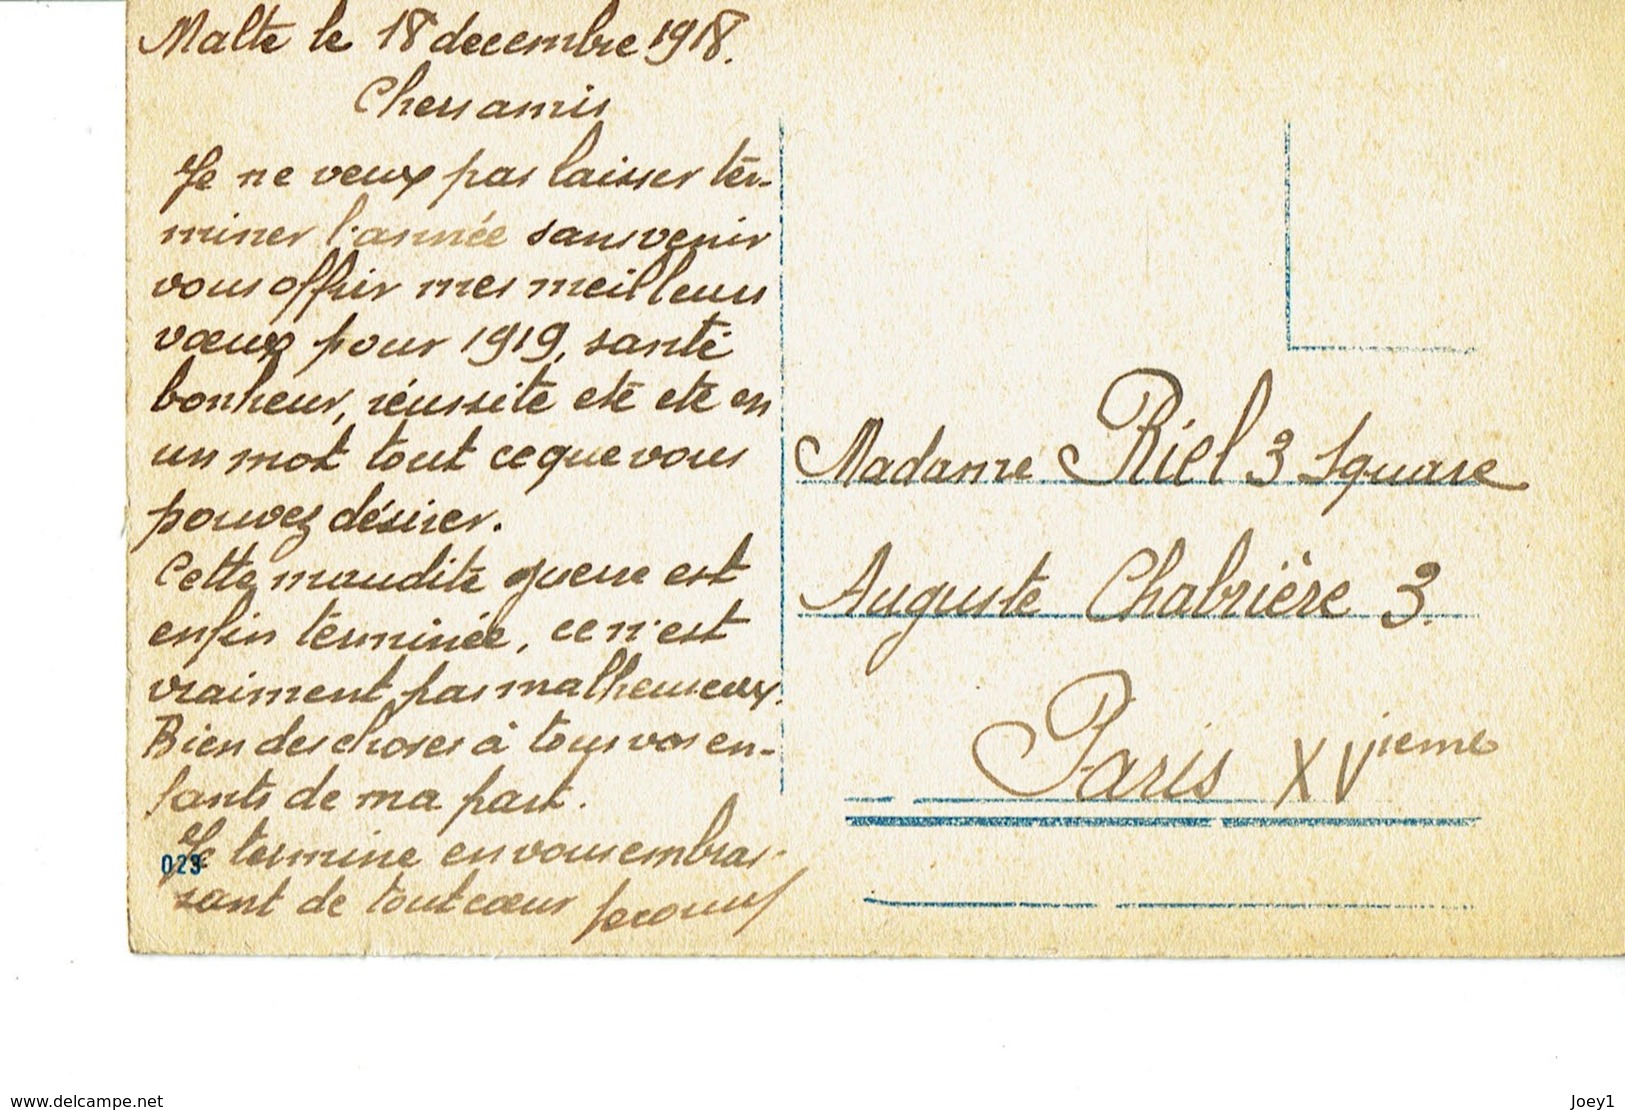 Malte le 18 decembre 1918.
Chers amis
Je ne veux pas laisser ter-
miner l'année sans venir
vous offrir mes meilleurs
vœux pour 1919, santé
bonheur, réussite etc etc en
un mot tout ce que vous
pouvez désirer.
Cette maudite guerre est
enfin terminée, ce n'est
vraiment pas malheureux.
Bien des choses à tous vos en-
fants de ma part.
Je termine en vous embras-
sant de tout cœur
023
Madame Riel 3 Square
Auguste Chabrière 3.
Paris XVième
www.delcampe.net
Joey1